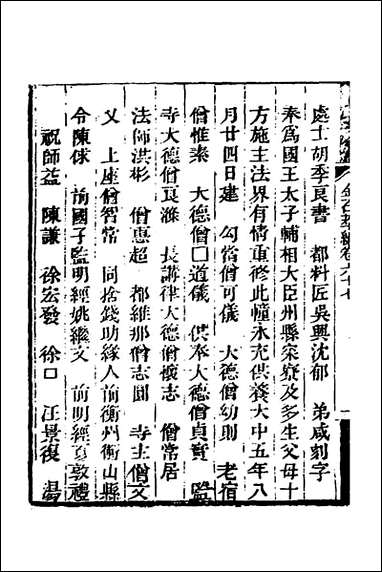 金石萃編卷六十七
一
處士胡季良書　都料匠吳興沈郁　弟咸刻字
奉爲國王太子輔相大臣州縣寀寮及多生父母十
方施主法界有情重修此幢永充供養大中五年八
月廿四日建　勾當僧可儀　大德僧幼則　老宿
僧惟素　大德僧□道儀　供奉大德僧貞實　監
寺大德僧良滌　長講律大德僧懷志　僧常居
法師洪彬　僧惠超　都維那僧志圓　寺主僧文
又　上座僧智常　同捨錢助緣人前衡州衡山縣
令陳倈　前國子監明經姚繼文　前明經夏敦禮
祝師益　陳謙　徐宏發　徐□　汪景復　湯